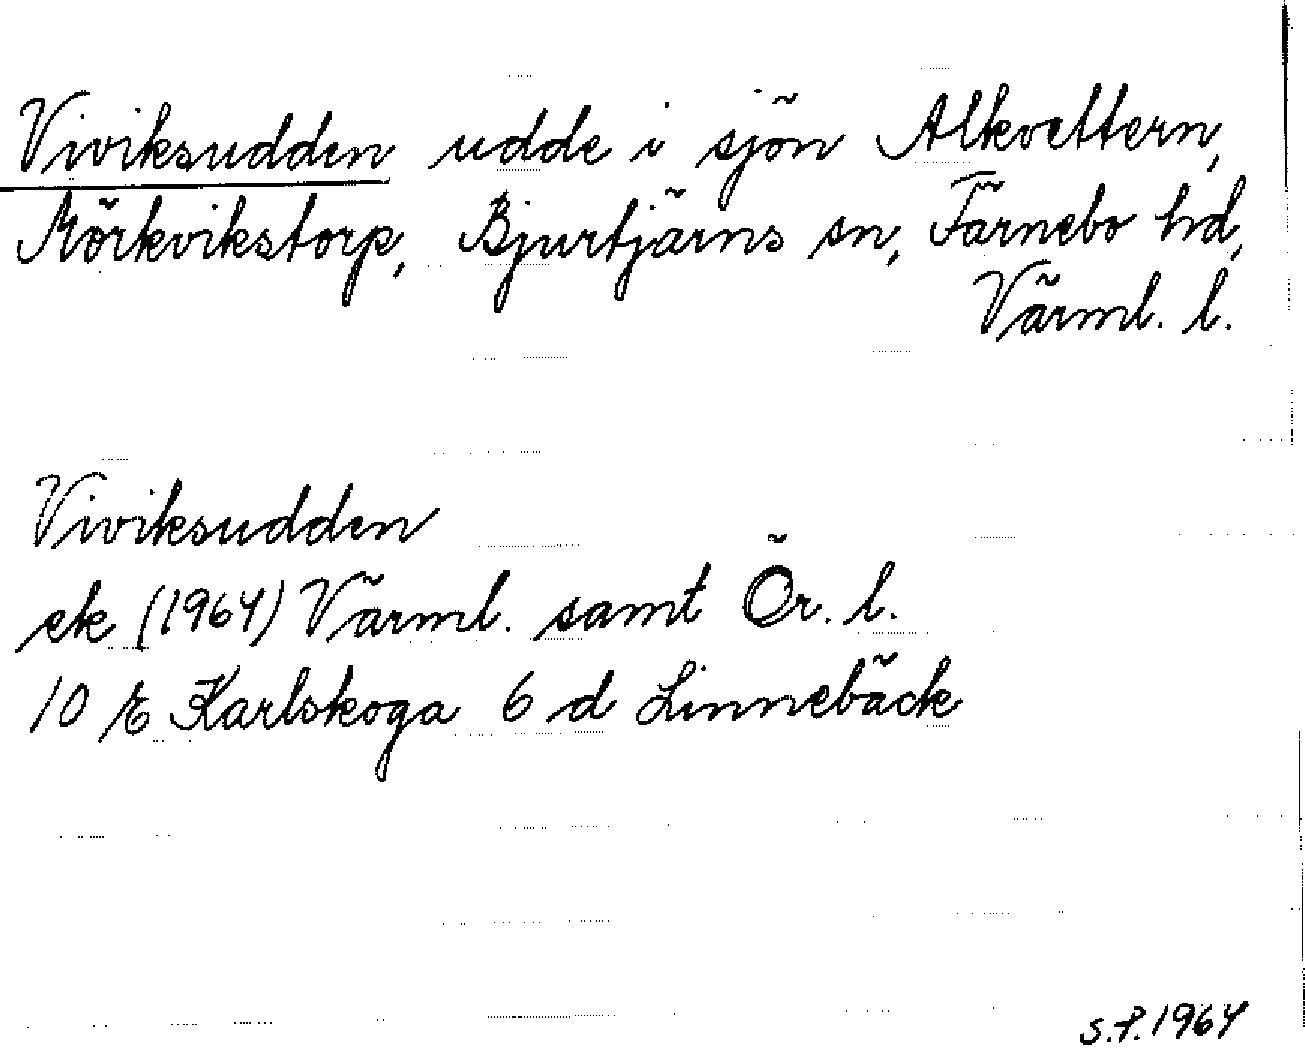 Viviksudden udde i sjön Alkvettern,
Mörkvikstorp, Bjurtjärns sn, Färnebo hd,
Värml. l.
Viviksudden
ek (1964) Värml. samt Ör. l.
10 E Karlskoga 6 d Linnebäck
S.P. 1964